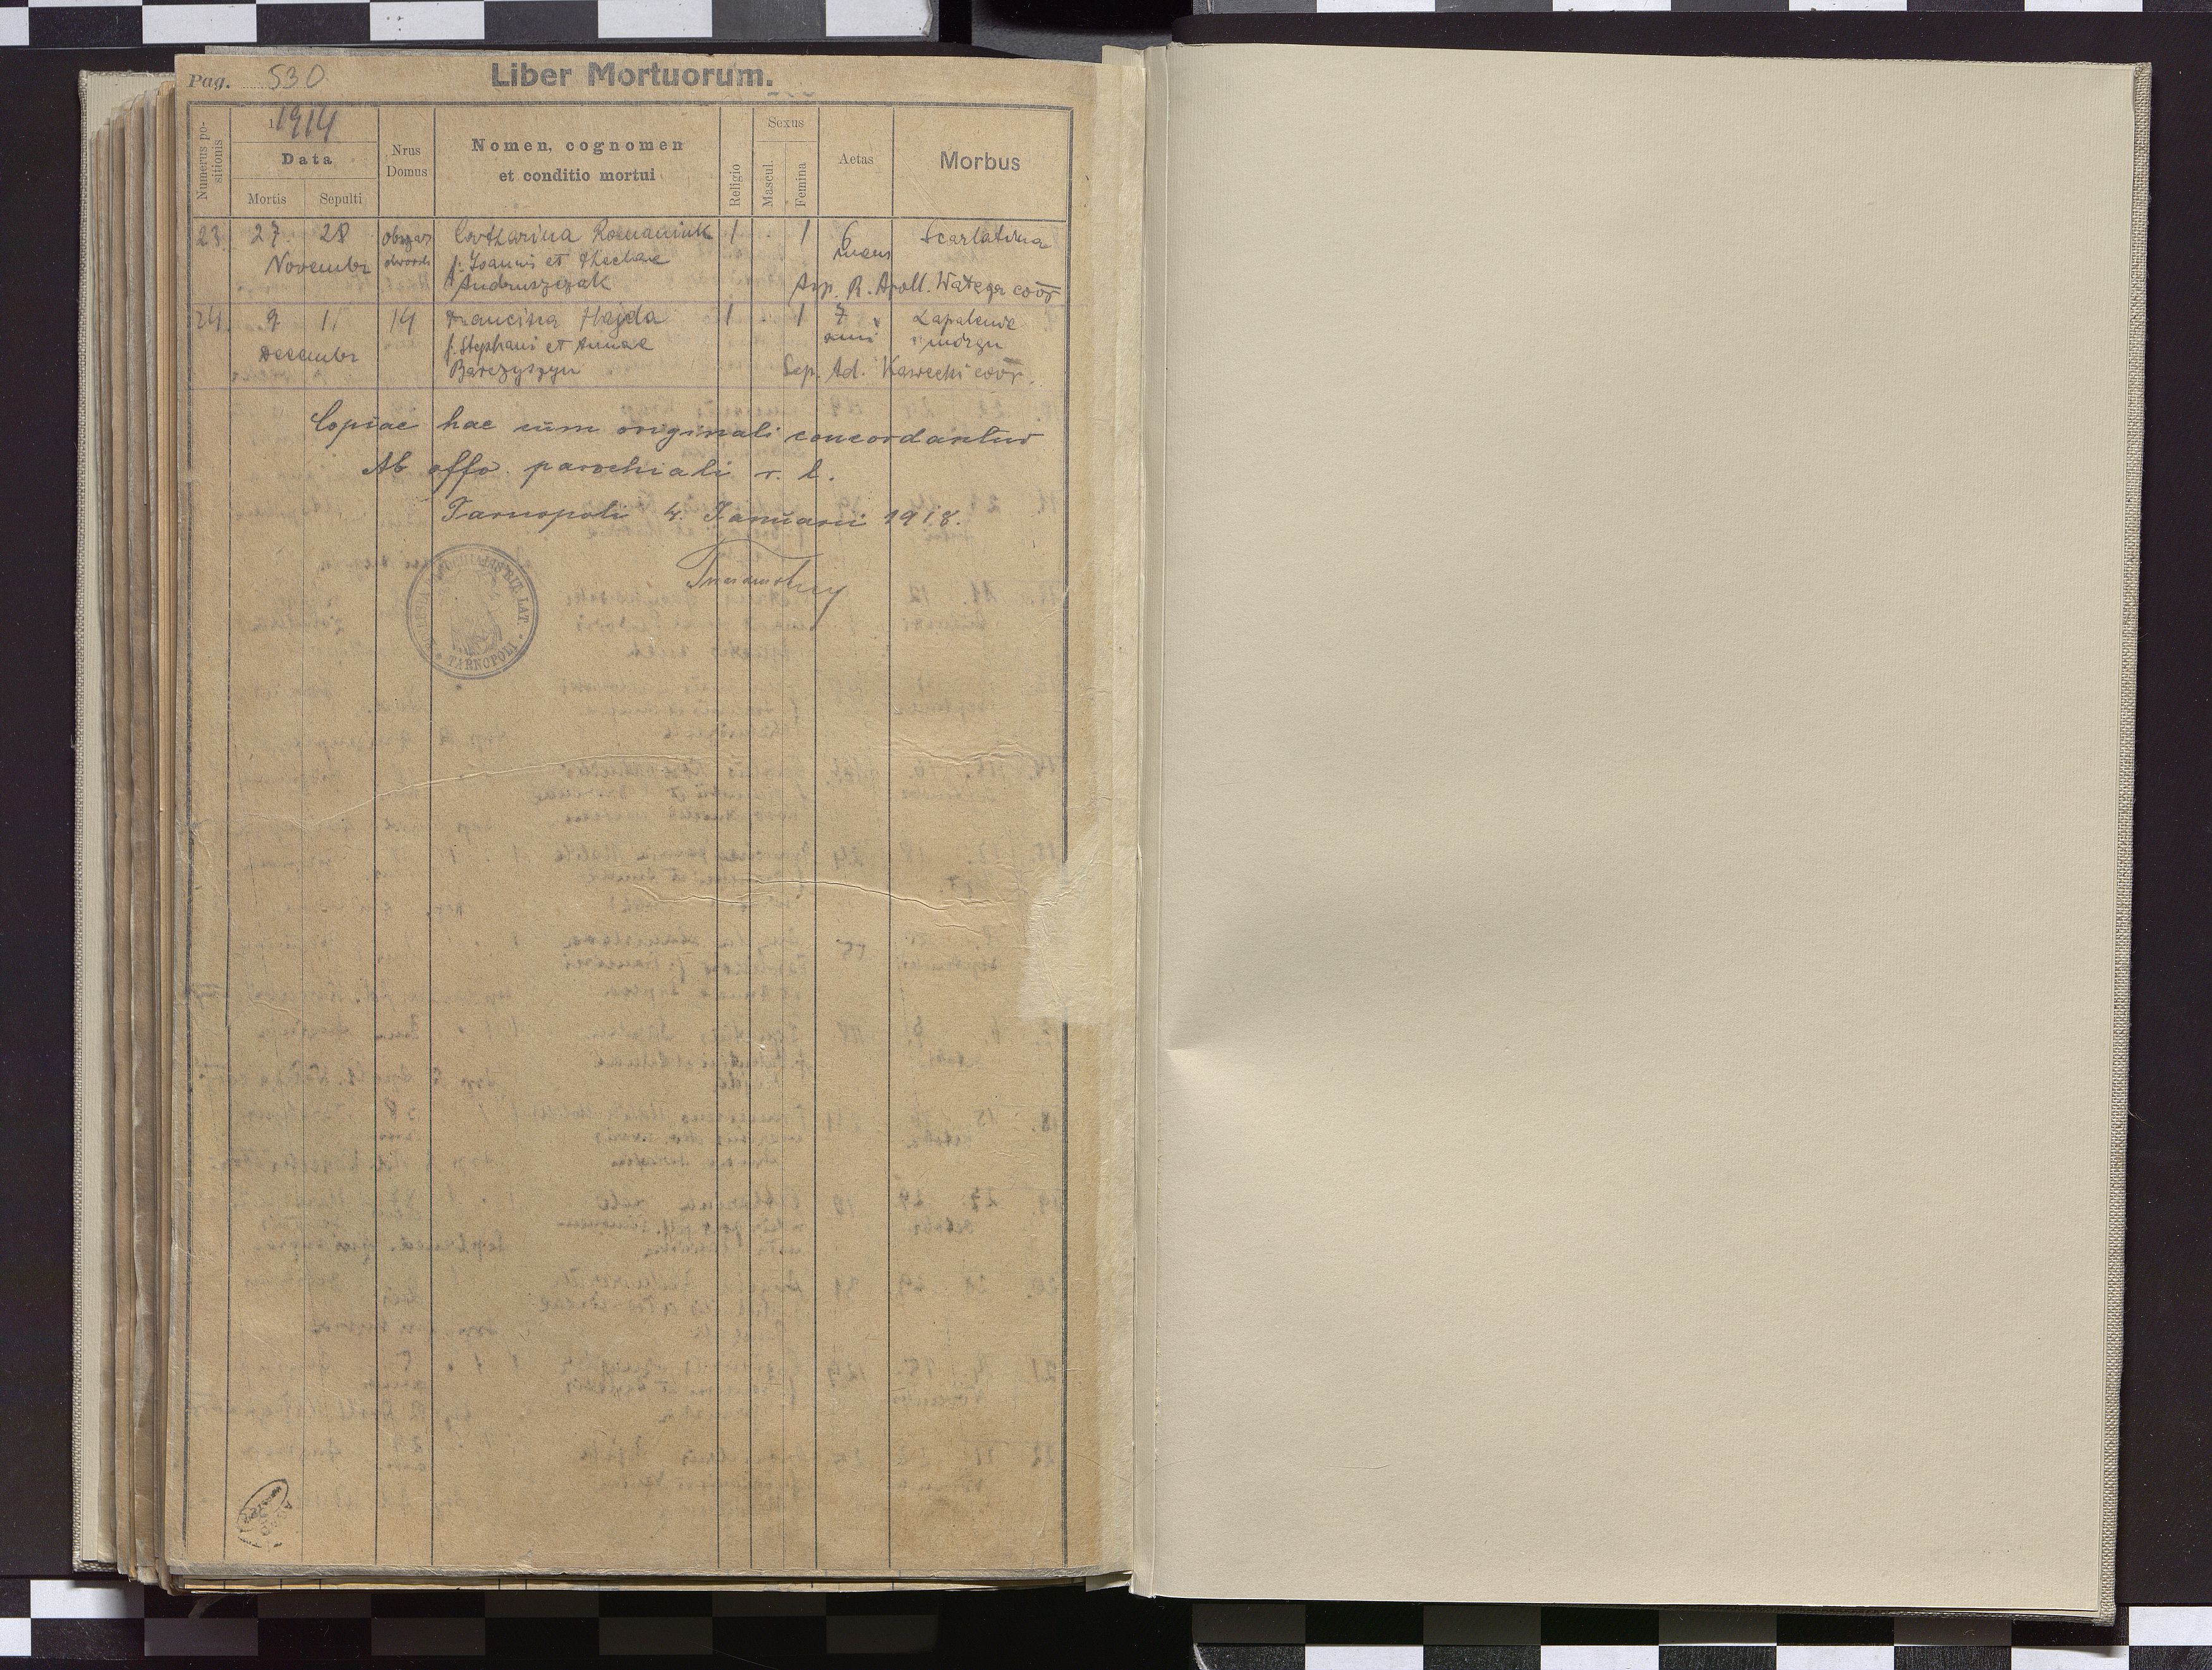 Pag. 530
Liber Mortuorum.
Numerus positionis
1914
Data
Mortis
Sepulti
Nrus Domus
Nomen, cognomen
et conditio mortui
Religio
Sexus
Mascul.
Femina
Aetas
Morbus
23. 27 28 obszar Catharina Romaniuk 1 . 1 6 Scarlatina
Novembr dworski f. Joannis et Theclae mens
Andruszczak Sep. R. Apoll. Wałęga coop
24. 9 11 14 Francisca Hajda 1 . 1 7 Zapalenie
Decembr f. Stephani et Annae anni mózgu
Barczyszyn Sep. Ad. Kawecki coop.
Copiae hae cum originali concordantur
Ab offo. parochiali r. l.
Tarnopoli 4. Januarii 1918.
RIT. LAT.
TARNOPOLI